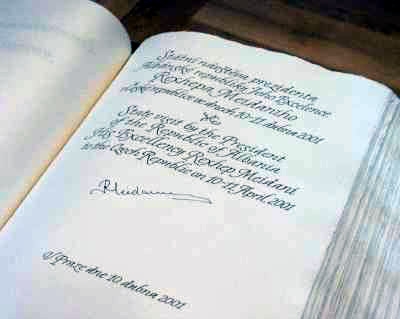 Státní návštěva prezidenta
Albánské republiky Jeho Excelence
Rexhepa Meidaniho
v České republice ve dnech 10-11. dubna 2001
State visit by the President
of the Republic of Albania
His Excellency Rexhep Meidani
to the Czech Republic on 10-11 April 2001
RMeidani
V Praze dne 10. dubna 2001